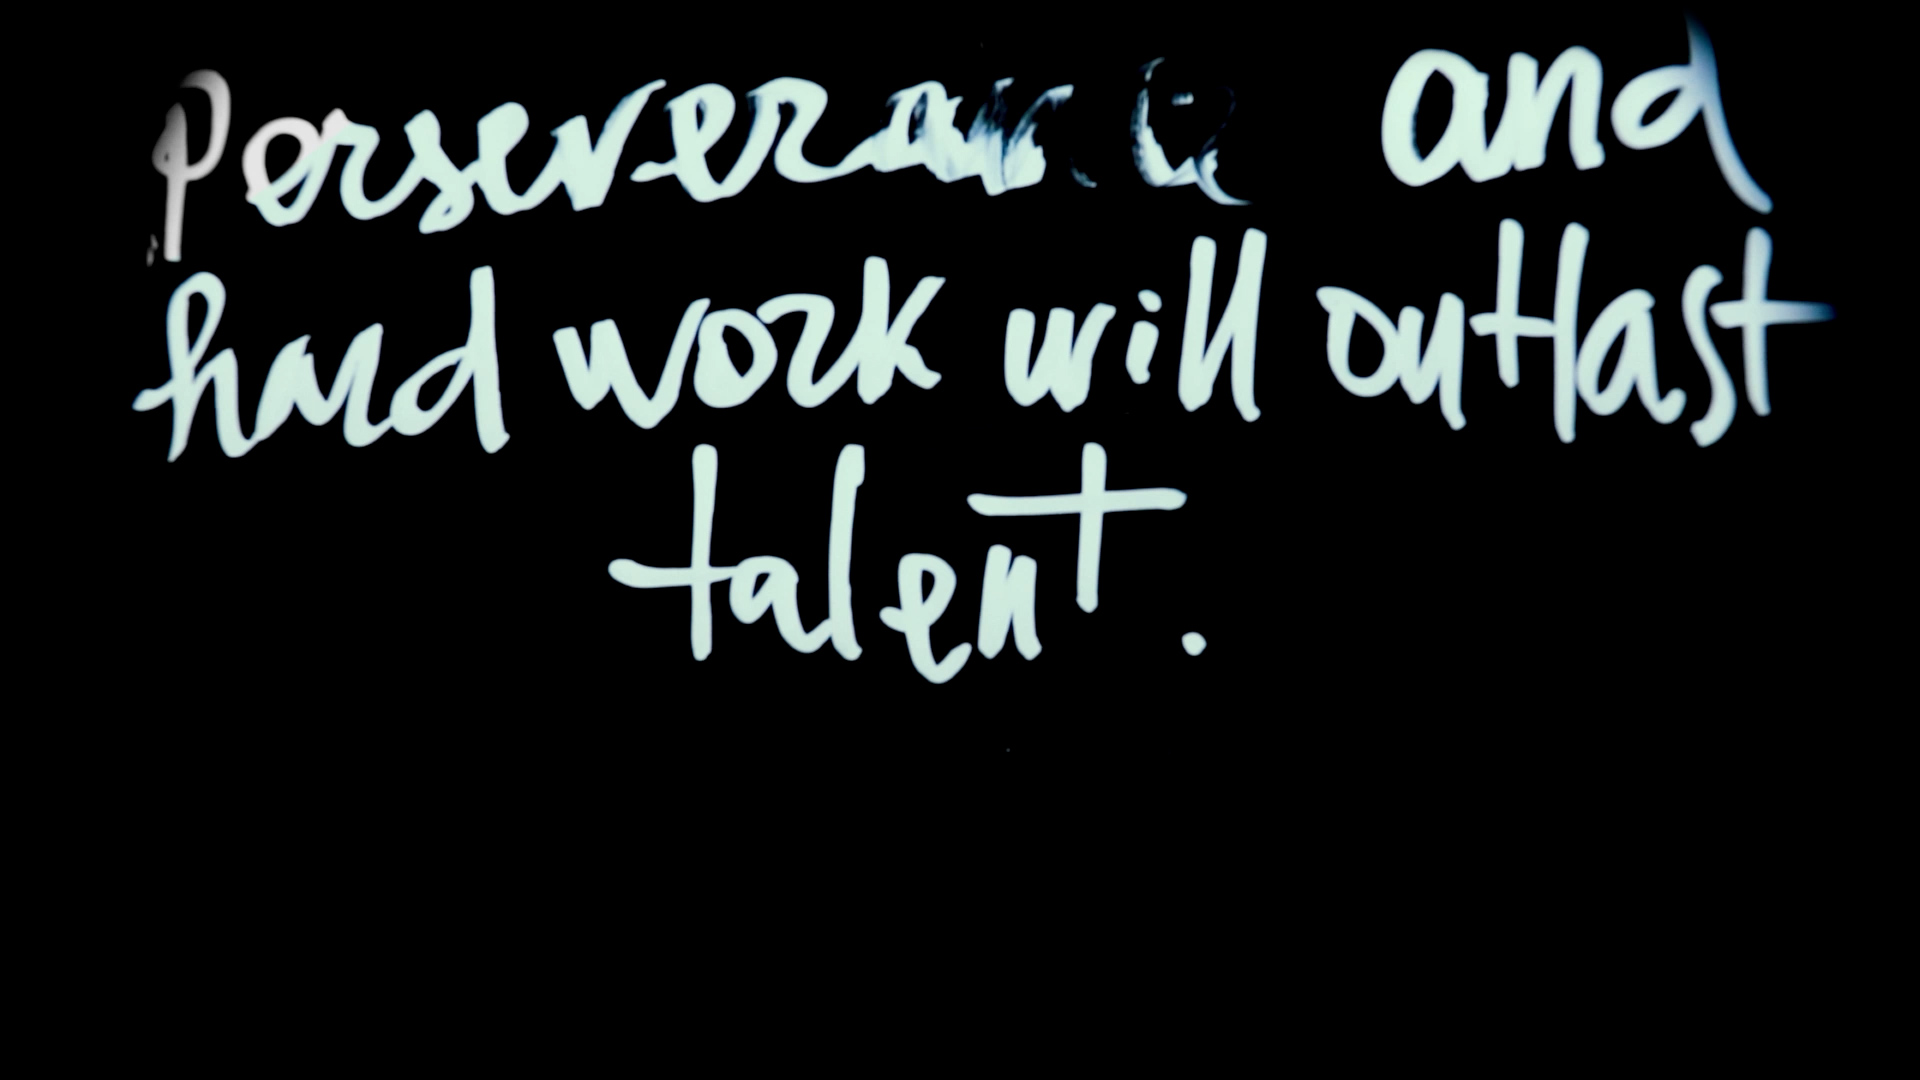 Perseverance and
hard work will outlast
talent.